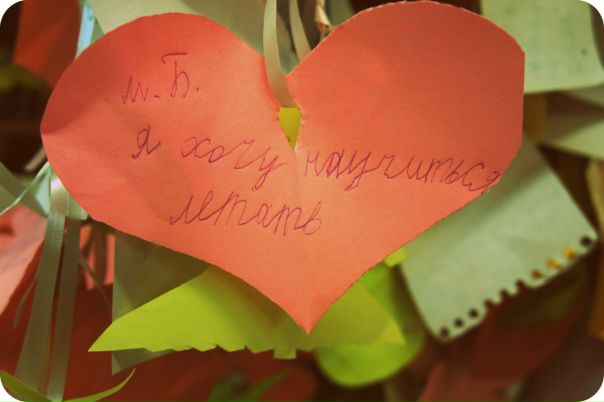 м. Б.
я хочу научиться
летать